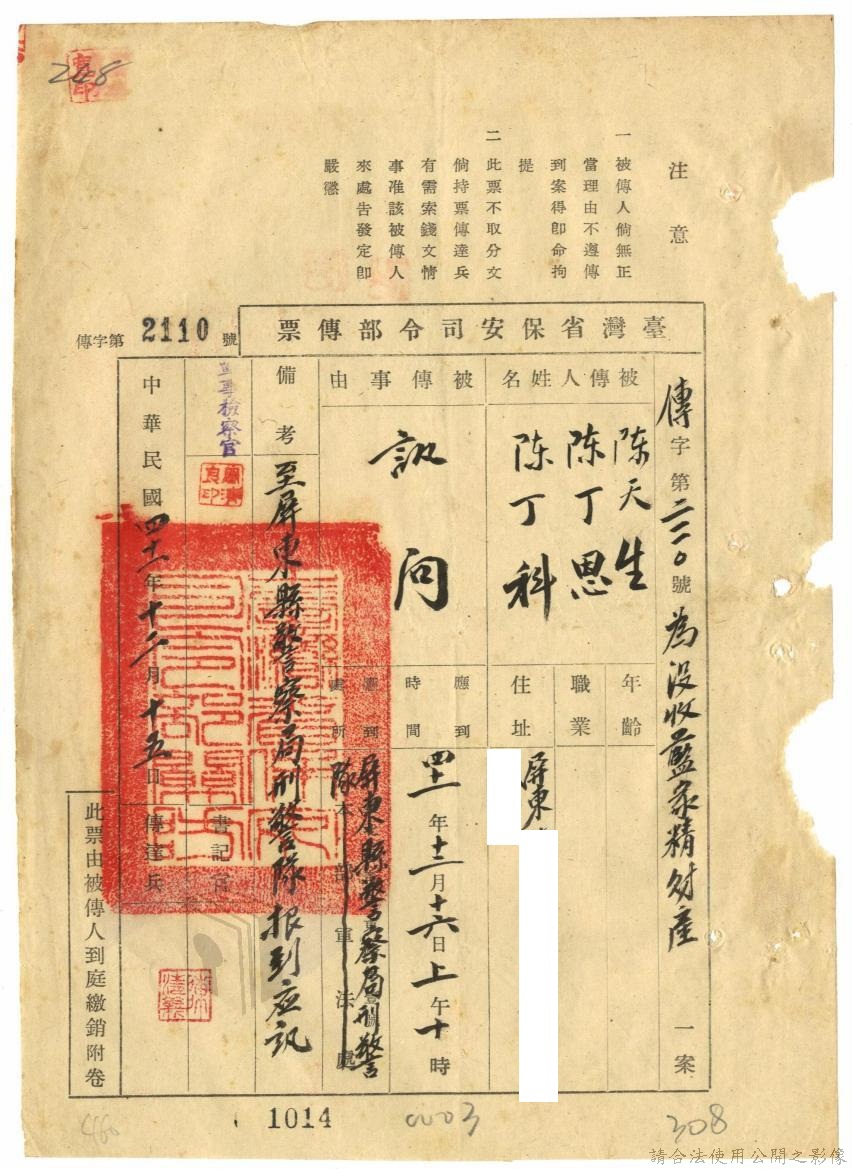 248
注意
一 被傳人倘無正
當理由不遵傳
到案得卽命拘
提
二 此票不取分文
倘持票傳達兵
有需索錢文情
事准該被傳人
來處吿發定卽
嚴懲
臺灣省保安司令部傳票
傳字第2110號
傳字第二一一〇號為沒收藍家精財產一案
被傳人姓名
陈天生
陈丁思
陈丁科
年齡
職業
住址
屏東
被傳事由
訊問
應到時間
四十一年十二月十六日上午十時
應到處所
屏東縣警察局刑警隊
本部軍法處
備考
至屏東縣警察局刑警隊报到应訊
軍事檢察官
書記官
中華民國四十一年十二月十五日
傳達兵
此票由被傳人到庭繳銷附卷
1014
0003
308
460
請合法使用公開之影像